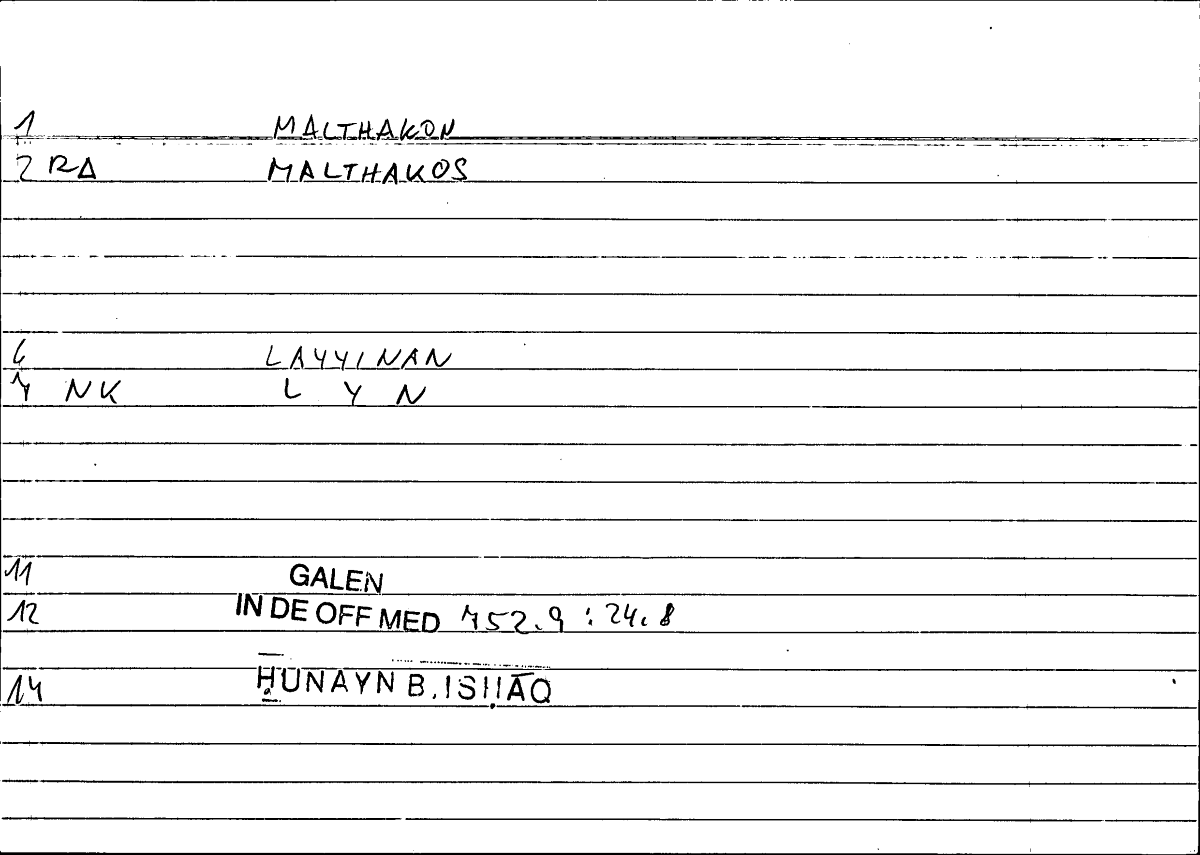 1 MALTHAKON
2 RA MALTHAKOS
6 LAYYINAN
7 NK L Y N
11 GALEN
12 IN DE OFF MED 752.9 : 24.8
14 ḤUNAYN B. ISḤĀQ